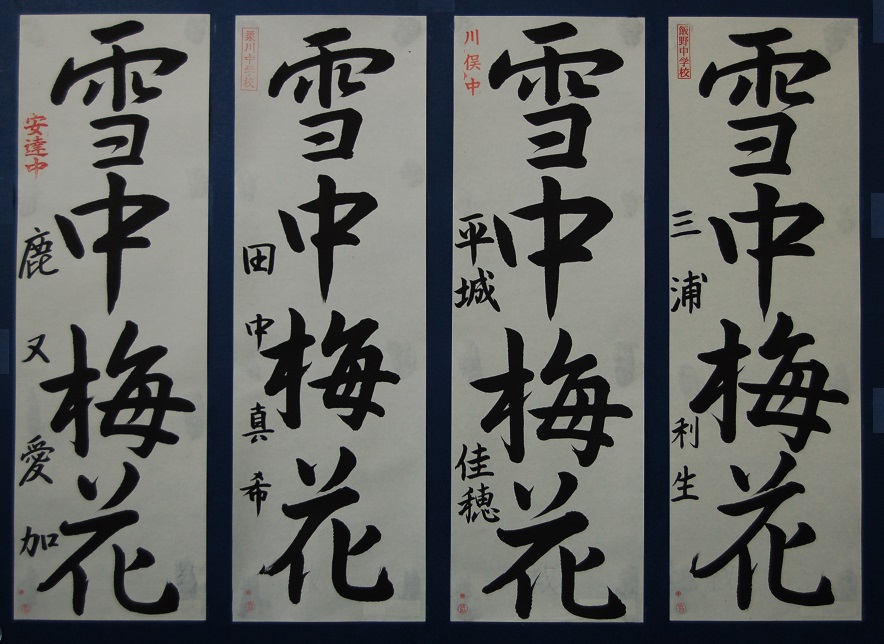 飯野中学校
雪中梅花
三浦利生
川俣中
雪中梅花
平城佳穂
梁川中学校
雪中梅花
田中真希
安達中
雪中梅花
鹿又愛加